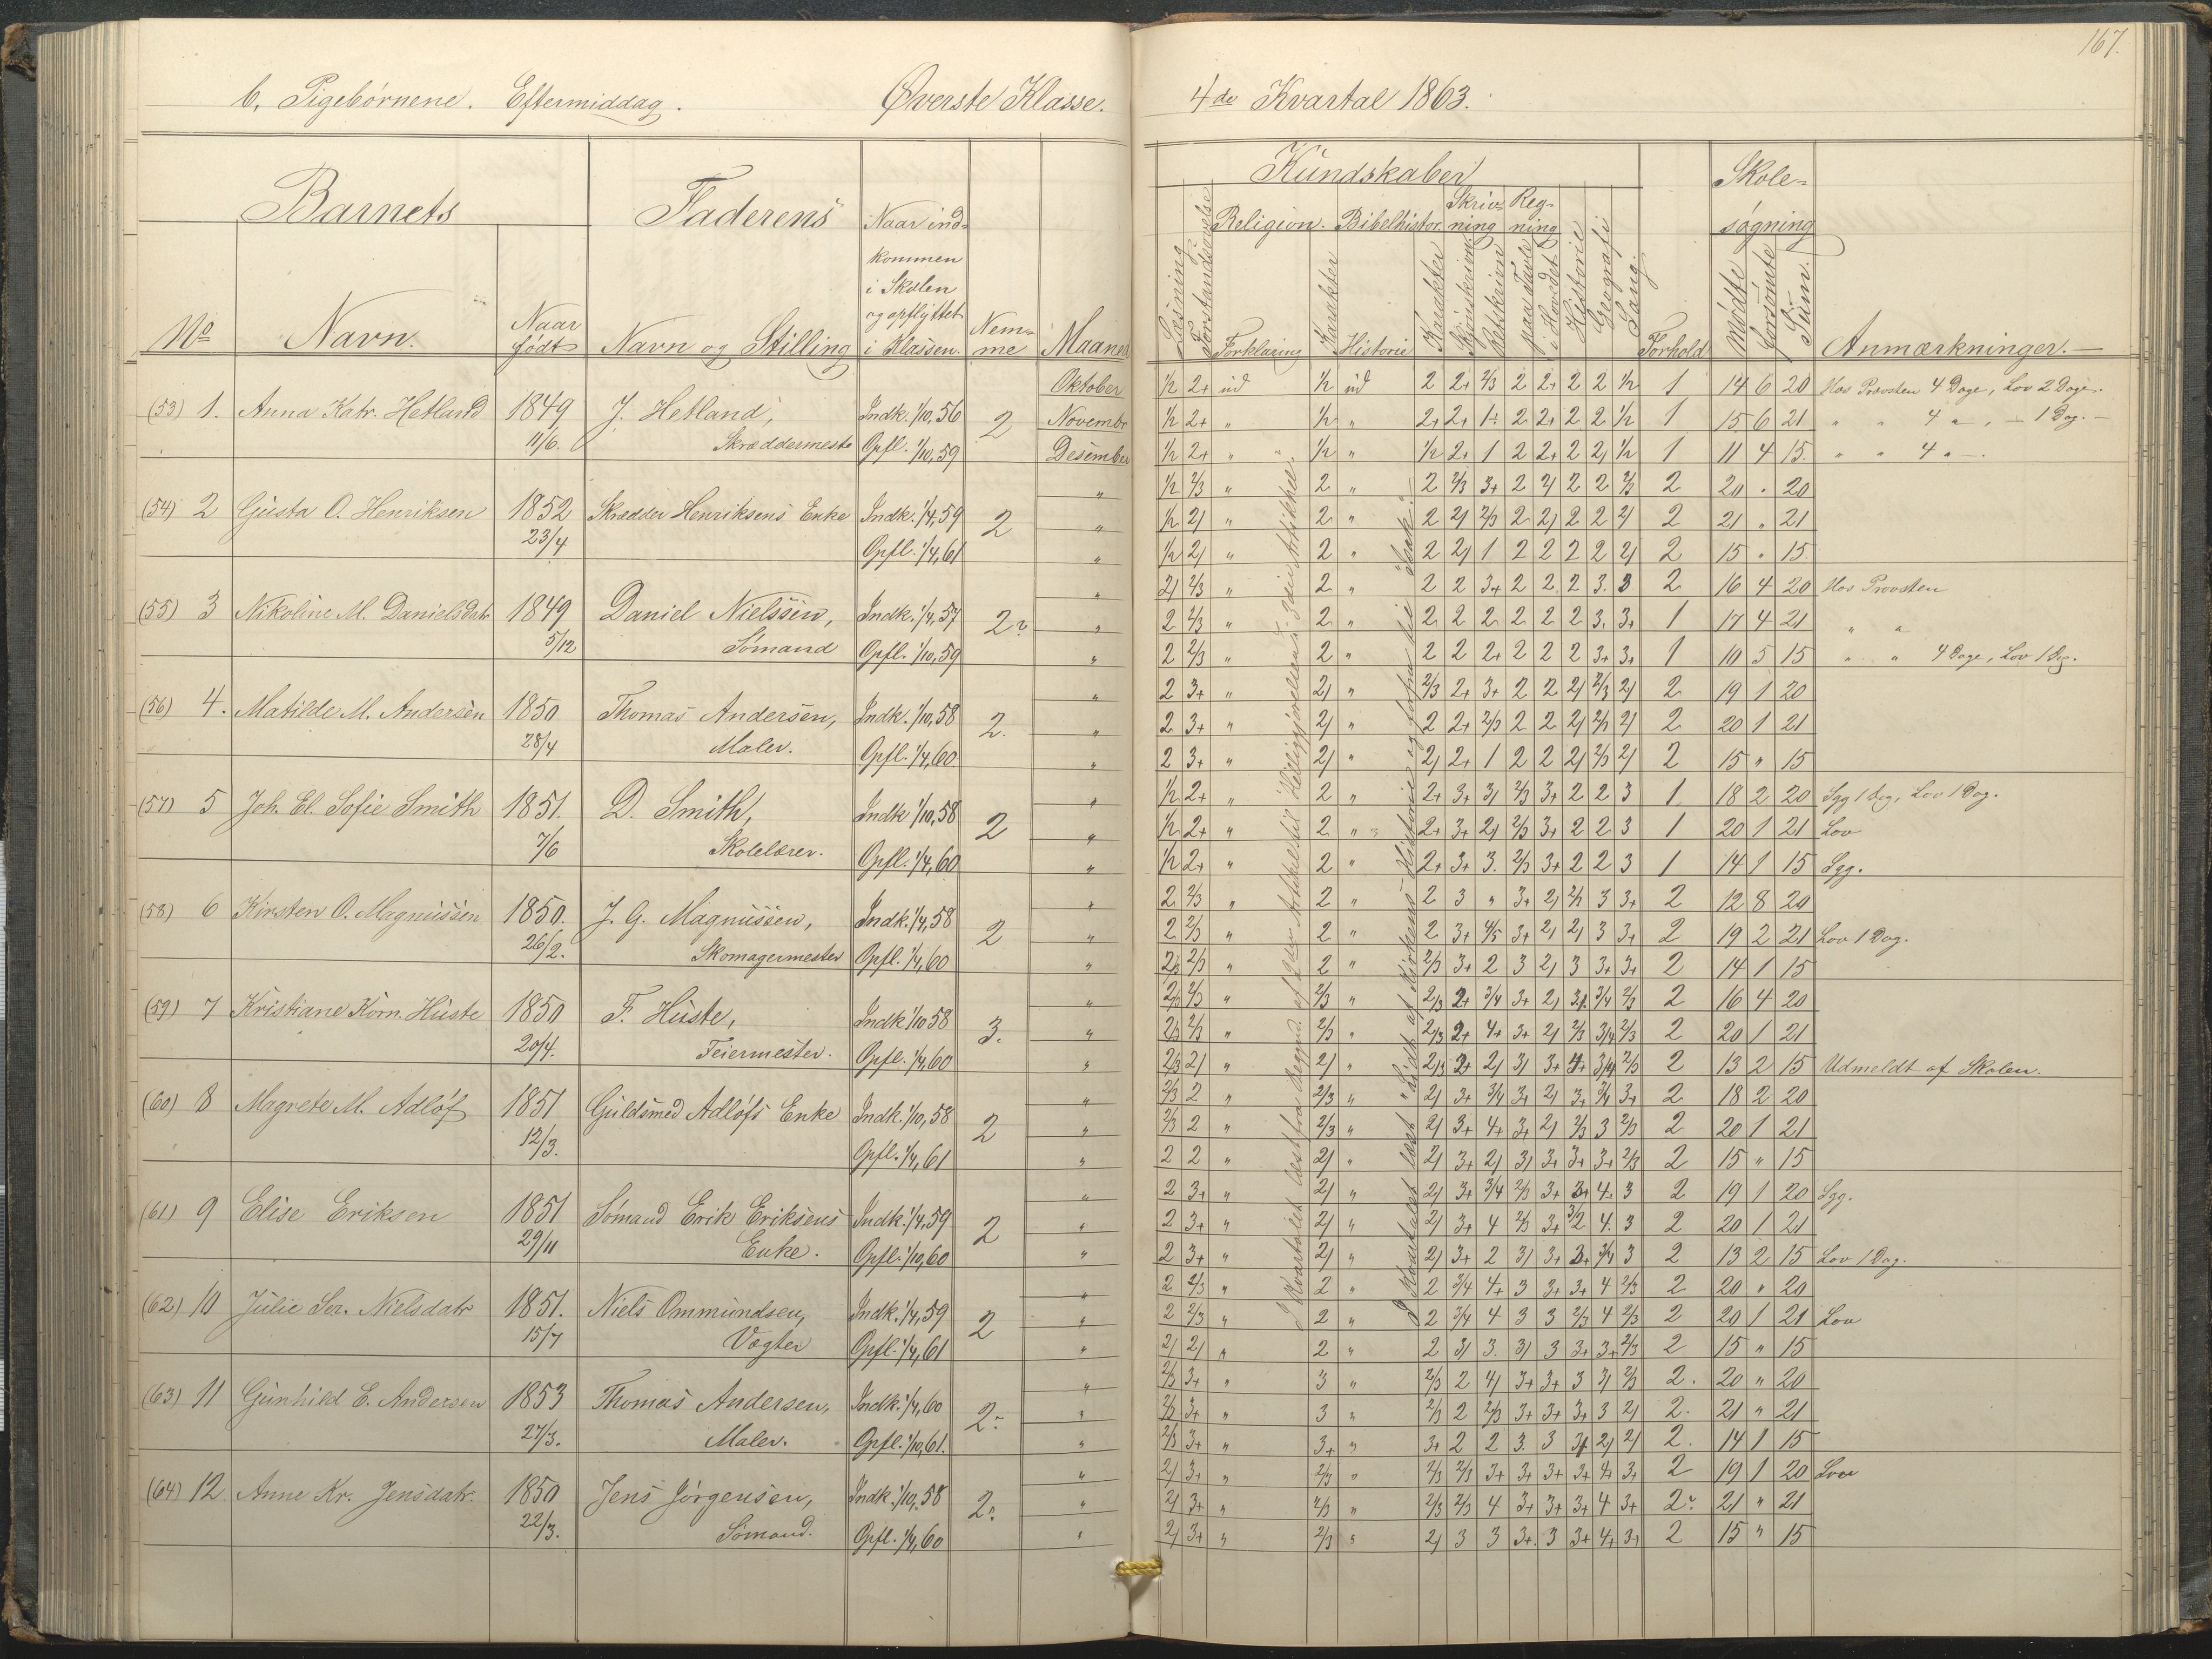 167.
b, Pigebørnene. Eftermiddag. Øverste Klasse. 4de Kvartal 1863.
Barnets Faderens Naar ind- Kundskaber Skole-
Religion. Bibelhistor. Skriv- Reg-
kommen ning ning søgning
i Skolen
og opflyttet
No Navn. Naar født Navn og Stilling i Klassen. Nem-me Maaned Læsning Forstandsøvelse Forklaring Karakter Historie Karakter Skjønskrivn. Retskrivn. paa Tavle i Hovedet Historie Geografi Sang. Forhold Mødte forsømte Sum. Anmærkninger.
Oktober 1/2 2+ ud 1/2 ud 2 2+ 2/3 2 2+ 2 2 1/2 1 14 6 20 Hos Provsten 4 Dage, Lov 2 Dage.
(53) 1. Anna Katr. Hetland 1849 J. Hetland, Indk. 1/10, 56 2 November 1/2 2+ " 1/2 " 2+ 2+ 1 2 2+ 2 2 1/2 1 15 6 21 " " 4 " , — 1 Dag. —
11/6. Skræddermester Opfl. 1/10, 59 Desember 1/2 2+ " 1/2 " 1/2 2+ 1 2 2+ 2 2 1/2 1 11 4 15 " " 4 " —.
" 1/2 2/3 " 2 " 2 2/3 3+ 2 2/ 2 2 2/3 2 20 " 20
(54) 2 Gusta O. Henriksen 1852 Skrædder Henriksens Enke Indk. 1/4, 59 2 " 1/2 2/ " 2 " 2 2/ 2/3 2 2/ 2 2 2/ 2 21 " 21
23/4 Opfl. 1/4, 61 " 1/2 2/ " 2 " 2 2/ 1 2 2 2 2 2/ 2 15 " 15
" 2/ 2/3 " 2 " 2 2 3+ 2 2 2 3. 3 2 16 4 20 Hos Provsten
(55) 3 Nikoline M. Danielsdatr 1849 Daniel Nielssen, Indk. 1/4, 57 2 " 2 2/3 " 2 " 2 2 2 2 2 2 3. 3+ 1 17 4 21 " "
5/12 Sømand Opfl. 1/10, 59 " 2 2/3 " 2 " 2 2 2+ 2 2 2 3+ 3+ 1 10 5 15 " " 4 Dage, Lov 1 Dag.
" 2 3+ " 2/ " 2/3 2+ 3+ 2 2 2/ 2/3 2/ 2 19 1 20
(56) 4. Matilde M. Andersen 1850 Thomas Andersen, Indk. 1/10, 58 2. " 2 3+ " 2/ " 2 2+ 2/3 2 2 2/ 2/3 2/ 2 20 1 21
28/4 Maler. Opfl. 1/4, 60. " 2 3+ " 2/ " 2/ 2+ 1 2 2 2/ 2/3 2/ 2 15 " 15
" 1/2 2+ " 2 " 2+ 3+ 3/ 2/3 3+ 2 2 3 1 18 2 20 Syg 1 Dag, Lov 1 Dag.
(57) 5 Joh. El. Sofie Smith 1851. D. Smith, Indk 1/10, 58 2 " 1/2 2+ " 2 " 2+ 3+ 2/ 2/3 3+ 2 2 3 1 20 1 21 Lov
7/6 Skolelærer. Opfl. 1/4, 60 " 1/2 2+ " 2 " 2+ 3+ 3. 2/3 3+ 2 2 3 1 14 1 15 Syg.
" 2 2/3 " 2 " 2 3 " 3+ 2/ 2/3 3 3+ 2 12 8 20
(58) 6 Kirsten O. Magnussen 1850. J. G. Magnussen, Indk. 1/4, 58 2 " 2 2/3 " 2 " 2 3+ 4/5 3+ 2/ 2/ 3 3+ 2 19 2 21 Lov 1 Dag.
26/2. Skomagermester Opfl. 1/4, 60 " 2/3 2/3 " 2 " 2/3 3+ 2 3 2/ 3 3+ 3+ 2 14 1 15
" 2/3 2/3 " 2/3 " 2/3 2+ 3/4 3+ 2/ 3/ 3/4 2/3 2 16 4 20
(59) 7 Kristiane Korn. Huste 1850 F. Huste, Indk 1/10 58 3. " 2/3 2/3 " 2/3 " 2/3 2+ 4+ 3+ 2/ 2/3 3/4 2/3 2 20 1 21
20/4. Feiermester. Opfl. 1/4, 60 " 2/3 2/ " 2/ " 2/3 2+ 2/ 3/ 3+ 4+ 3/4 2/3 2 13 2 15 Udmeldt af Skolen.
" 2/3 2 " 2/3 " 2/ 3+ 3/4 3+ 2/ 3+ 3/4 3+ 2 18 2 20
(60) 8 Magrete M. Adløf 1851 Guldsmed Adløfs Enke Indk. 1/10, 58 2 " 2/3 2 " 2/3 " 2/ 3+ 4+ 3+ 2/ 2/3 3 2/3 2 20 1 21
12/3. Opfl. 1/4, 61 " 2 2 " 2/ " 2/ 3+ 2/ 3/ 3+ 3+ 3+ 2/3 2 15 " 15
" 2 3+ " 2/ " 2/ 3+ 3/4 2/3 3+ 3+ 4. 3 2 19 1 20 Syg.
(61) 9 Elise Eriksen 1851 Sømand Erik Eriksens Indk. 1/4, 59 2 " 2 3+ " 2/ " 2/ 3+ 4 2/3 3+ 3/2 4. 3 2 20 1 21
29/11 Enke. Opfl. 1/10, 60 " 2 3+ " 2/ " 2/ 3+ 2 3/ 3+ 3+ 3/4 3 2 13 2 15 Lov 1 Dag.
" 2 2/3 " 2 " 2 3/4 4+ 3 3+ 3+ 4 2/3 2 20 " 20
(62) 10 Julie Ser. Nielsdatr 1851. Niels Ommundsen, Indk. 1/4, 59 2 " 2 2/3 " 2 " 2 3/4 4 3 3 2/3 4 2/3 2 20 1 21 Lov
15/7 Vægter Opfl. 1/4, 61 " 2/ 2/ " 2 " 2 3/ 3. 3/ 3 3+ 3+ 2/3 2 15 " 15
" 2/3 3+ " 3 " 2/3 2 4/ 3+ 3+ 3 3/ 2/3 2. 20 " 20
(63) 11 Gunhild E. Andersen 1853 Thomas Andersen, Indk. 1/4, 60 2 " 2/3 3+ " 3 " 2/3 2 2/3 3+ 3+ 3+ 3 2/ 2. 21 " 21
27/3. Maler. Opfl. 1/10, 61. " 2/3 3+ " 3+ " 3+ 2 2 3. 3 3+ 2/ 2/ 2. 14 1 15
" 2/ 3+ " 2/3 " 2/3 2/3 3+ 3+ 3+ 3+ 4+ 3+ 2 19 1 20 Lov
(64) 12. Anne Kr. Jensdatr. 1850 Jens Jørgensen, Indk. 1/10, 58 2. " 2/ 3+ " 2/3 " 2/3 2/3 4 3+ 3+ 3+ 4 3+ 2 21 " 21
22/3. Sømand. Opfl. 1/4, 60 " 2/ 3+ " 2/3 " 2/ 3 3 3+ 3 3+ 4+ 3+ 2 15 " 15
I Kvartalet læst fra Begynd. af 2den Artikkel til Helliggjørelsen i 3die Artikkel.
I Kvartalet læst Lidt af Kirkens Historie og forfra til Isak.